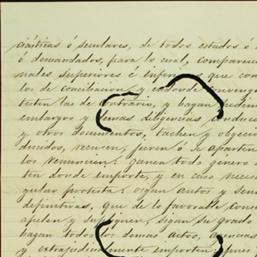 siásticas ó seculares, de todos estados ó
ó demandados, para lo cual, comparec
nales superiores é inferiores que con
los de conciliacion y
citen las de contrario, y hagan pedim
embargos y demas diligencias conduc
y otros documentos, tachen y objec
recusen, juren ó se aparten
los renuncien. Ganen todo genero
ten donde importe, y en caso neces
protesta: oigan autos y sen
definitivas, que de lo favorable consi
apelen y supliquen, sigan su grado
hagan todos los demas actos, agencias
y extrajudicialmente importen, pues